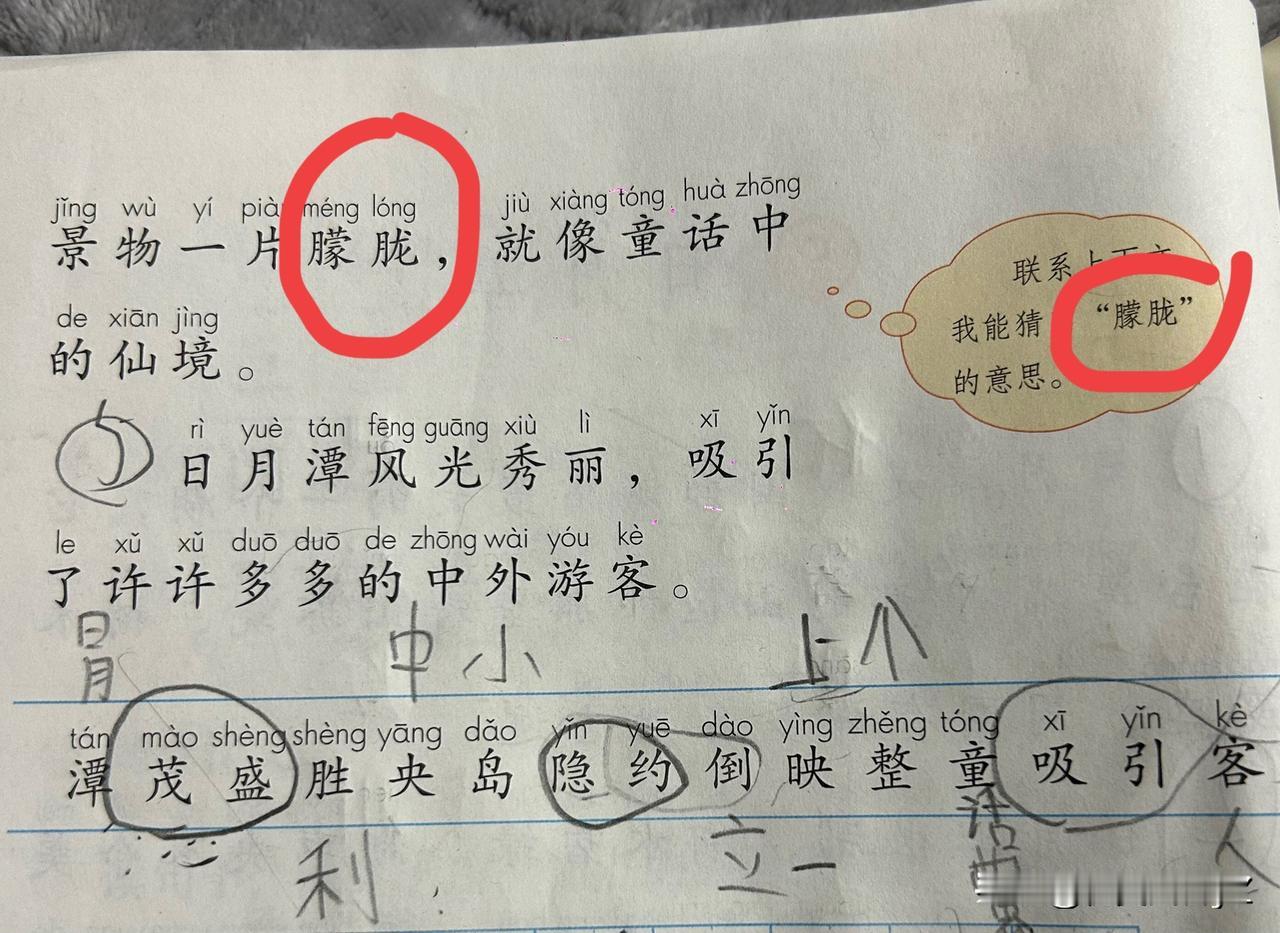 jǐng wù yí piàn méng lóng jiù xiàng tóng huà zhōng
景物一片朦胧，就像童话中
de xiān jìng
的仙境。
联系上下文，
我能猜“朦胧”
的意思。
rì yuè tán fēng guāng xiù lì xī yǐn
日月潭风光秀丽，吸引
le xǔ xǔ duō duō de zhōng wài yóu kè
了许许多多的中外游客。
日月 中 小 上 个
tán mào shèng shèng yāng dǎo yǐn yuē dào yìng zhěng tóng xī yǐn kè
潭茂盛胜央岛隐约倒映整童吸引客
利 立一 话 人